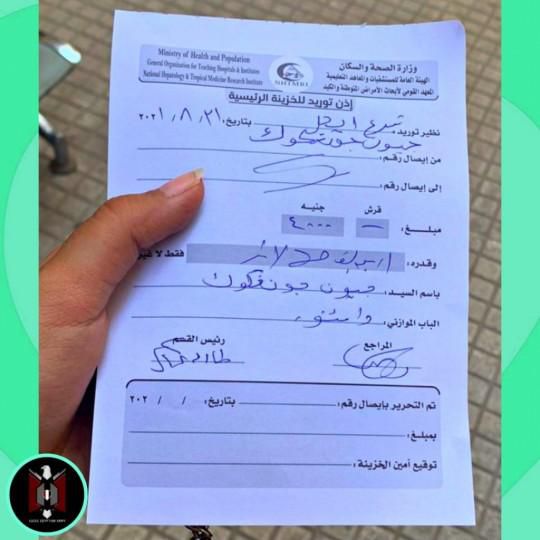 Ministry of Health and Population
General Organization for Teaching Hospitals & Institutes
National Hepatology & Tropical Medicine Research Institute
NHTMRI
وزارة الصحة والسكان
الهيئة العامة للمستشفيات والمعاهد التعليمية
المعهد القومي لأبحاث الأمراض المتوطنة والكبد
إذن توريد للخزينة الرئيسية
نظير توريد تبرع بتاريخ: ٢٠٢١/٨/٣١
جيون جونغكوك
من إيصال رقم:
إلى إيصال رقم:
قرش جنيه
مبلغ: — ٤٠٠٠
وقدره: فقط لا غير
باسم السيد: جيون جونغكوك
الباب الموازني:
المراجع رئيس القسم
تم التحرير بإيصال رقم: بتاريخ: / / ٢٠٢
بمبلغ:
توقيع أمين الخزينة: